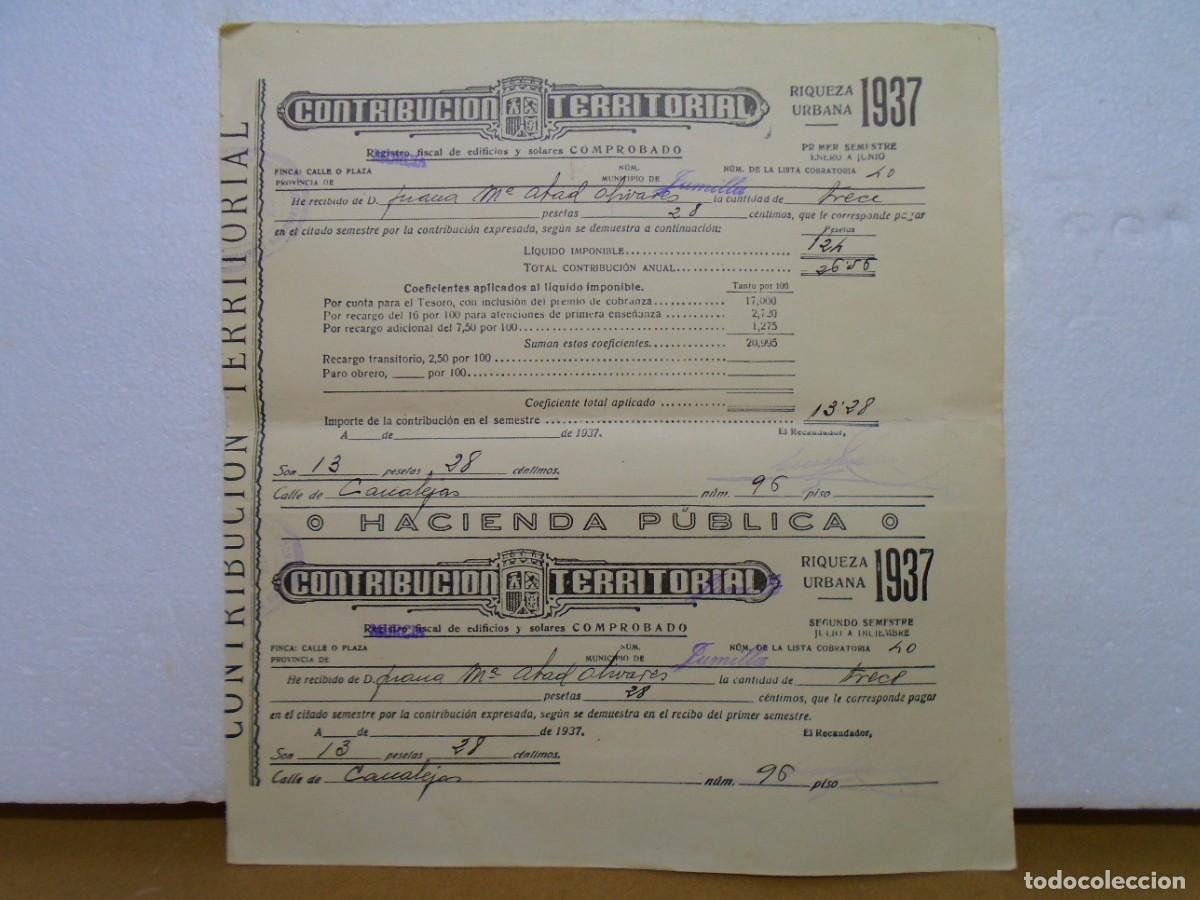 CONTRIBUCION TERRITORIAL
CONTRIBUCION TERRITORIAL
RIQUEZA URBANA 1937
Registro fiscal de edificios y solares COMPROBADO
PRIMER SEMESTRE
ENERO A JUNIO
FINCA: CALLE O PLAZA NÚM. NÚM. DE LA LISTA COBRATORIA 40
PROVINCIA DE MURCIA MUNICIPIO DE Jumilla
He recibido de D. Juana Mª Abad Olivares la cantidad de trece
pesetas 28 céntimos, que le corresponde pagar
en el citado semestre por la contribución expresada, según se demuestra a continuación:
Pesetas
LÍQUIDO IMPONIBLE 124
TOTAL CONTRIBUCIÓN ANUAL 26'56
Coeficientes aplicados al líquido imponible. Tanto por 100
Por cuota para el Tesoro, con inclusión del premio de cobranza 17,000
Por recargo del 16 por 100 para atenciones de primera enseñanza 2,720
Por recargo adicional del 7,50 por 100 1,275
Suman estos coeficientes 20,995
Recargo transitorio, 2,50 por 100
Paro obrero, ____ por 100
Coeficiente total aplicado
Importe de la contribución en el semestre 13'28
A ____ de ____ de 1937. El Recaudador,
Son 13 pesetas 28 céntimos.
Calle de Canalejas núm. 96 piso
HACIENDA PÚBLICA
CONTRIBUCION TERRITORIAL
RIQUEZA URBANA 1937
Registro fiscal de edificios y solares COMPROBADO
SEGUNDO SEMESTRE
JULIO A DICIEMBRE
FINCA: CALLE O PLAZA NÚM. NÚM. DE LA LISTA COBRATORIA 40
PROVINCIA DE MURCIA MUNICIPIO DE Jumilla
He recibido de D. Juana Mª Abad Olivares la cantidad de trece
pesetas 28 céntimos, que le corresponde pagar
en el citado semestre por la contribución expresada, según se demuestra en el recibo del primer semestre.
A ____ de ____ de 1937. El Recaudador,
Son 13 pesetas 28 céntimos.
Calle de Canalejas núm. 96 piso
todocoleccion